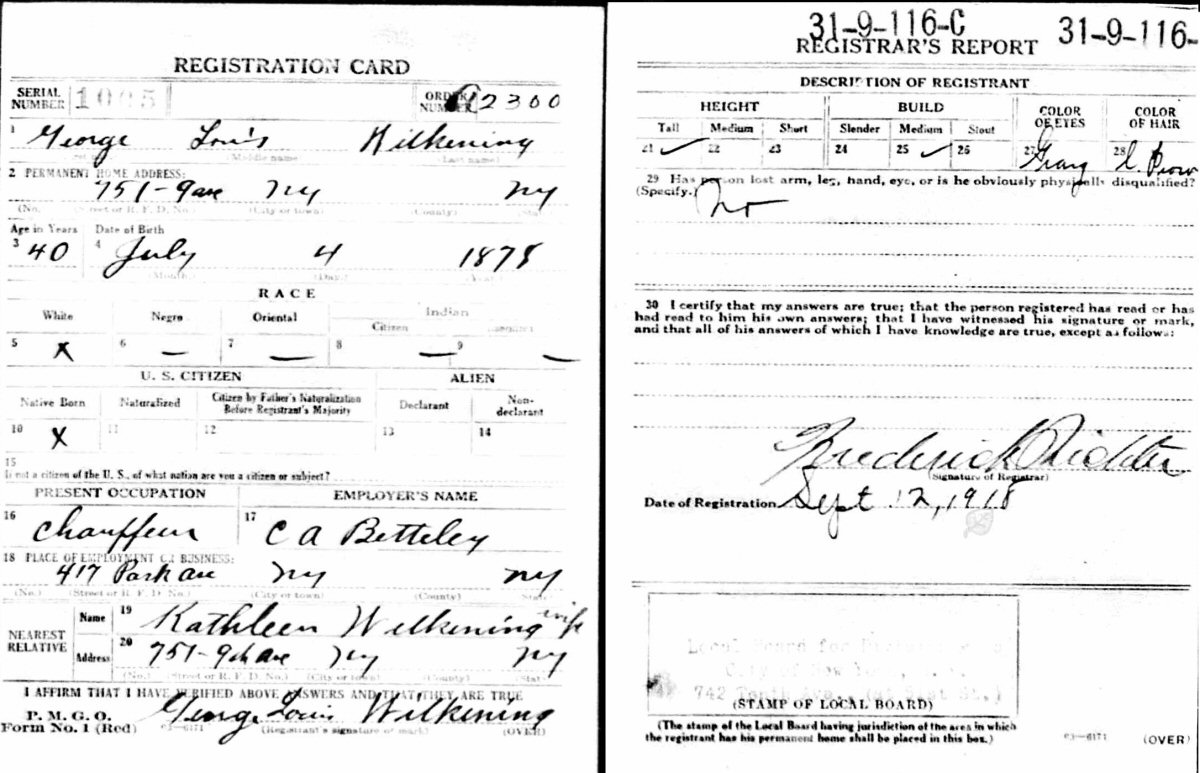 REGISTRATION CARD
SERIAL NUMBER
ORDER NUMBER 2300
1 George Louis Wilkening
(Middle name) (Last name)
2 PERMANENT HOME ADDRESS:
751-9 ave NY NY
(No.) (Street or R. F. D. No.) (City or town) (County) (State)
Age in Years Date of Birth
3 40 4 July 4 1878
(Month) (Day) (Year)
RACE
White Negro Oriental Indian
Citizen
5 X 6 — 7 — 8 — 9 —
U. S. CITIZEN ALIEN
Native Born Naturalized Citizen by Father's Naturalization Before Registrant's Majority Declarant Non-declarant
10 X 11 12 13 14
15
If not a citizen of the U. S., of what nation are you a citizen or subject?
PRESENT OCCUPATION EMPLOYER'S NAME
16 Chauffeur 17 C A Betteley
18 PLACE OF EMPLOYMENT OR BUSINESS:
417 Park ave NY NY
(No.) (Street or R. F. D. No.) (City or town) (County) (State)
NEAREST RELATIVE
Name 19 Kathleen Wilkening wife
Address 20 751-9th ave NY NY
(No.) (Street or R. F. D. No.) (City or town) (County) (State)
I AFFIRM THAT I HAVE VERIFIED ABOVE ANSWERS AND THAT THEY ARE TRUE
P. M. G. O.
Form No. 1 (Red) George Louis Wilkening
03-6171 (Registrant's signature or mark) (OVER)
31-9-116-C 31-9-116-
REGISTRAR'S REPORT
DESCRIPTION OF REGISTRANT
HEIGHT BUILD COLOR OF EYES COLOR OF HAIR
Tall Medium Short Slender Medium Stout
21 ✓ 22 23 24 25 ✓ 26 27 Gray 28
29 Has person lost arm, leg, hand, eye, or is he obviously physically disqualified?
(Specify.) No
30 I certify that my answers are true; that the person registered has read or has
had read to him his own answers; that I have witnessed his signature or mark,
and that all of his answers of which I have knowledge are true, except as follows:
Frederick Ridder
(Signature of Registrar)
Date of Registration Sept 12, 1918
Local Board for
City of New York
742 Tenth Ave., (at 51st St.)
(STAMP OF LOCAL BOARD)
(The stamp of the Local Board having jurisdiction of the area in which
the registrant has his permanent home shall be placed in this box.)
03-6171 (OVER)